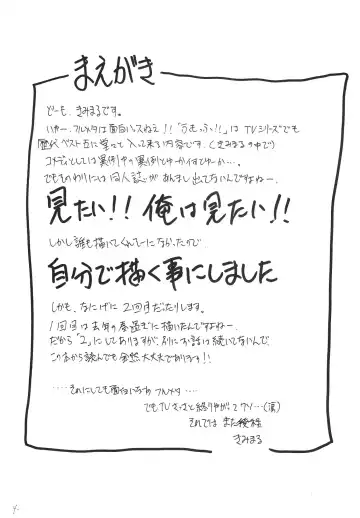 まえがき
どーも、きみまるです。
いやー、フルメタは面白いっスねぇ!!「ふもっふ!!」はTVシリーズでも
歴代ベスト五に堂々入って来る内容です。(きみまるの中で)
コメディとしては異例中の異例とゆーか何てゆーか…。
でもそのわりには同人誌があんまし出てないんですよねー、
見たい!!俺は見たい!!
しかし誰も描いてくんないなかったので
自分で描く事にしました
しかも、なにげに2回目だったりします。
1回目は去年の春過ぎに描いたんですよねー。
だから「2」にしてありますが、別にお話は続いてないんで
この本から読んでも全然大丈夫であります!!
……それにしても面白いなぁ フルメタ……
でもTVさっさと終りやがってクソ…(涙)
それでは また後程
きみまる
4.